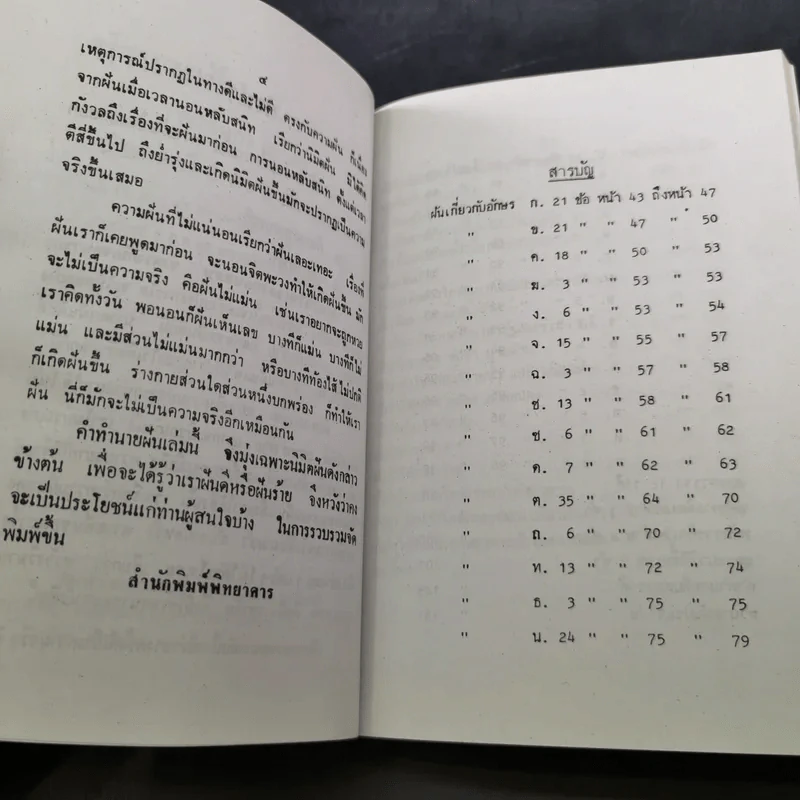 ๔
เหตุการณ์ปรากฏในทางดีและไม่ดี ตรงกับความฝัน ก็เนื่อง
จากฝันเมื่อเวลานอนหลับสนิท เรียกว่านิมิตฝัน มิได้คิด
กังวลถึงเรื่องที่จะฝันมาก่อน การนอนหลับสนิท ตั้งแต่เวลา
ตีสี่ขึ้นไป ถึงย่ำรุ่งและเกิดนิมิตฝันขึ้นมักจะปรากฏเป็นความ
จริงขึ้นเสมอ
ความฝันที่ไม่แน่นอนเรียกว่าฝันเลอะเทอะ เรื่องที่
ฝันเราก็เคยพูดมาก่อน จะนอนจิตพะวงทำให้เกิดฝันขึ้น มัก
จะไม่เป็นความจริง คือฝันไม่แม่น เช่นเราอยากจะถูกหวย
เราคิดทั้งวัน พอนอนก็ฝันเห็นเลข บางทีก็แม่น บางทีก็ไม่
แม่น และมีส่วนไม่แม่นมากกว่า หรือบางทีท้องไส้ไม่ปกติ
ก็เกิดฝันขึ้น ร่างกายส่วนใดส่วนหนึ่งบกพร่อง ก็ทำให้เรา
ฝัน นี่ก็มักจะไม่เป็นความจริงอีกเหมือนกัน
คำทำนายฝันเล่มนี้ จึงมุ่งเฉพาะนิมิตฝันดังกล่าว
ข้างต้น เพื่อจะได้รู้ว่าเราฝันดีหรือฝันร้าย จึงหวังว่าคง
จะเป็นประโยชน์แก่ท่านผู้สนใจบ้าง ในการรวบรวมจัด
พิมพ์ขึ้น
สำนักพิมพ์พิทยาคาร
สารบัญ
ฝันเกี่ยวกับอักษร ก. 21 ข้อ หน้า 43 ถึงหน้า 47
" ข. 21 " " 47 " 50
" ค. 18 " " 50 " 53
" ฆ. 3 " " 53 " 53
" ง. 6 " " 53 " 54
" จ. 15 " " 55 " 57
" ฉ. 3 " " 57 " 58
" ช. 13 " " 58 " 61
" ซ. 6 " " 61 " 62
" ด. 7 " " 62 " 63
" ต. 35 " " 64 " 70
" ถ. 6 " " 70 " 72
" ท. 13 " " 72 " 74
" ธ. 3 " " 75 " 75
" น. 24 " " 75 " 79